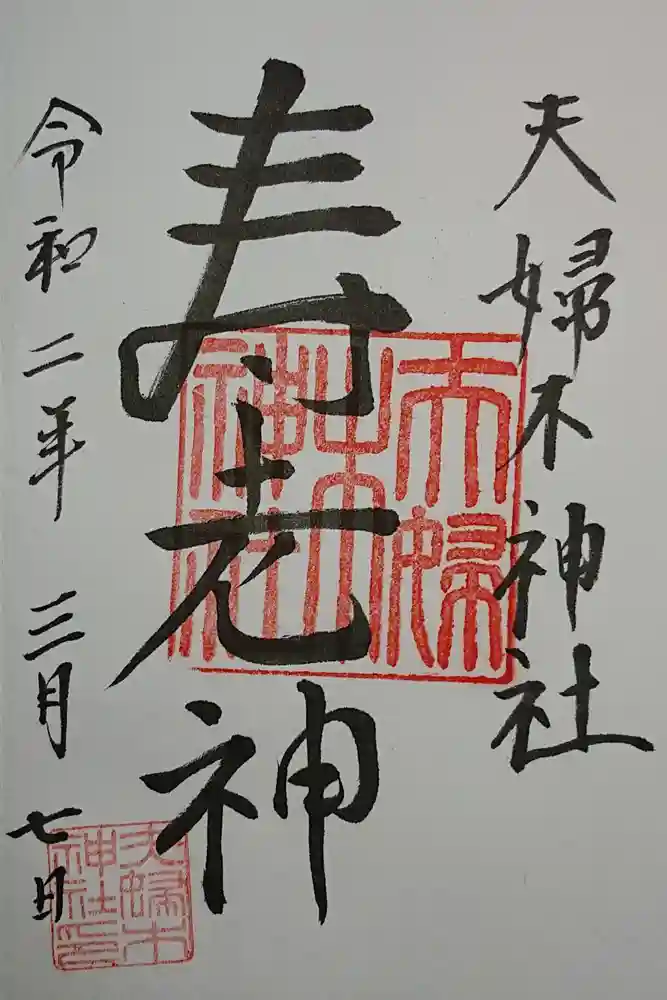 夫婦木神社
寿老神
令和二年 三月七日
夫婦木神社
夫婦木神社印